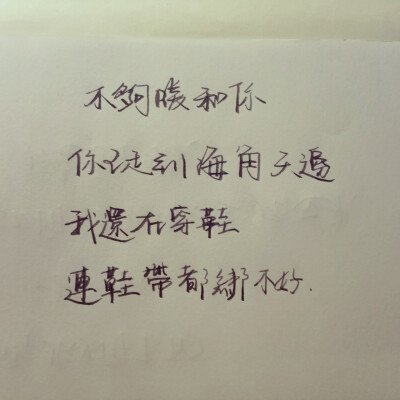 不夠暖和你
你已走到海角天邊
我還在穿鞋
連鞋帶都綁不好.